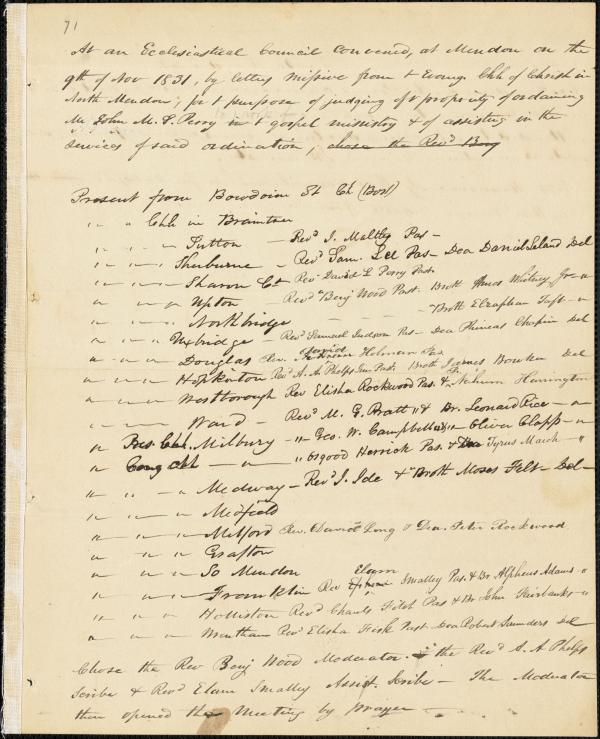 71
At an Ecclesiastical Council convened, at Mendon on the
9th of Nov 1831, by letters missive from t Evang. Chh of Christ in
North Mendon, for t purpose of judging of t propriety of ordaining
Mr John M. S. Perry in t gospel ministry & of assisting in the
services of said ordination, chose the Revd Benj
Present from Bowdoin St Ch (Bost)
" " Chh in Braintree
" — " — Sutton — Revd J. Maltby Pas —
" — " — Sherburne — Revd Sam. Lee Pas — Dea Daniel Leland Del
" — " — Sharon Ct Revd David L Perry Past.
" — " — Upton — Revd Benj Wood Past. Broth Amos Whitney Jr — "
" — " — Northbridge — — — Broth Elzaphan Taft — "
" — " — Uxbridge — Revd Samuel Judson Pas — Dea Phineas Chapin Del
" — " — Douglas Rev. David Holman Pas
" — " — Hopkinton Revd A. A. Phelps Jun. Past. Broth James Bowker Del
" — " — Westborough Rev Elisha Rockwood Pas. & Nahum Harrington
" — " — Ward — Revd M. G. Pratt " & Br. Leonard Rice — "
" Pres. Chh. Milbury — " Geo. W. Campbell " & " Oliver Clapp — "
" Cong Chh — " — " Osgood Herrick Pas. & Dea Tyrus March — "
" " — " Medway — Revd J. Ide & Broth Moses Felt — Del —
" — " — Medfield
" — " — Milford Rev. David Long & Dea. Peter Rockwood
" " — Grafton
" — " — So Mendon
" — " — Franklin Rev Elam Smalley Pas. & Br. Alpheus Adams — "
" — " — Holliston Revd Charls Fitch Pas & Br John Fairbanks — "
" — " — Wrentham Revd Elisha Fisk Past. Dea Robert Saunders Del
Chose the Rev Benj Wood Moderator. the Revd A. A Phelps
Scribe & Revd Elam Smalley Assist. Scribe — The Moderator
then opened the Meeting by prayer —